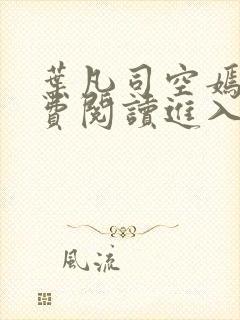 葉凡司空嫣
費閱讀進入
風流